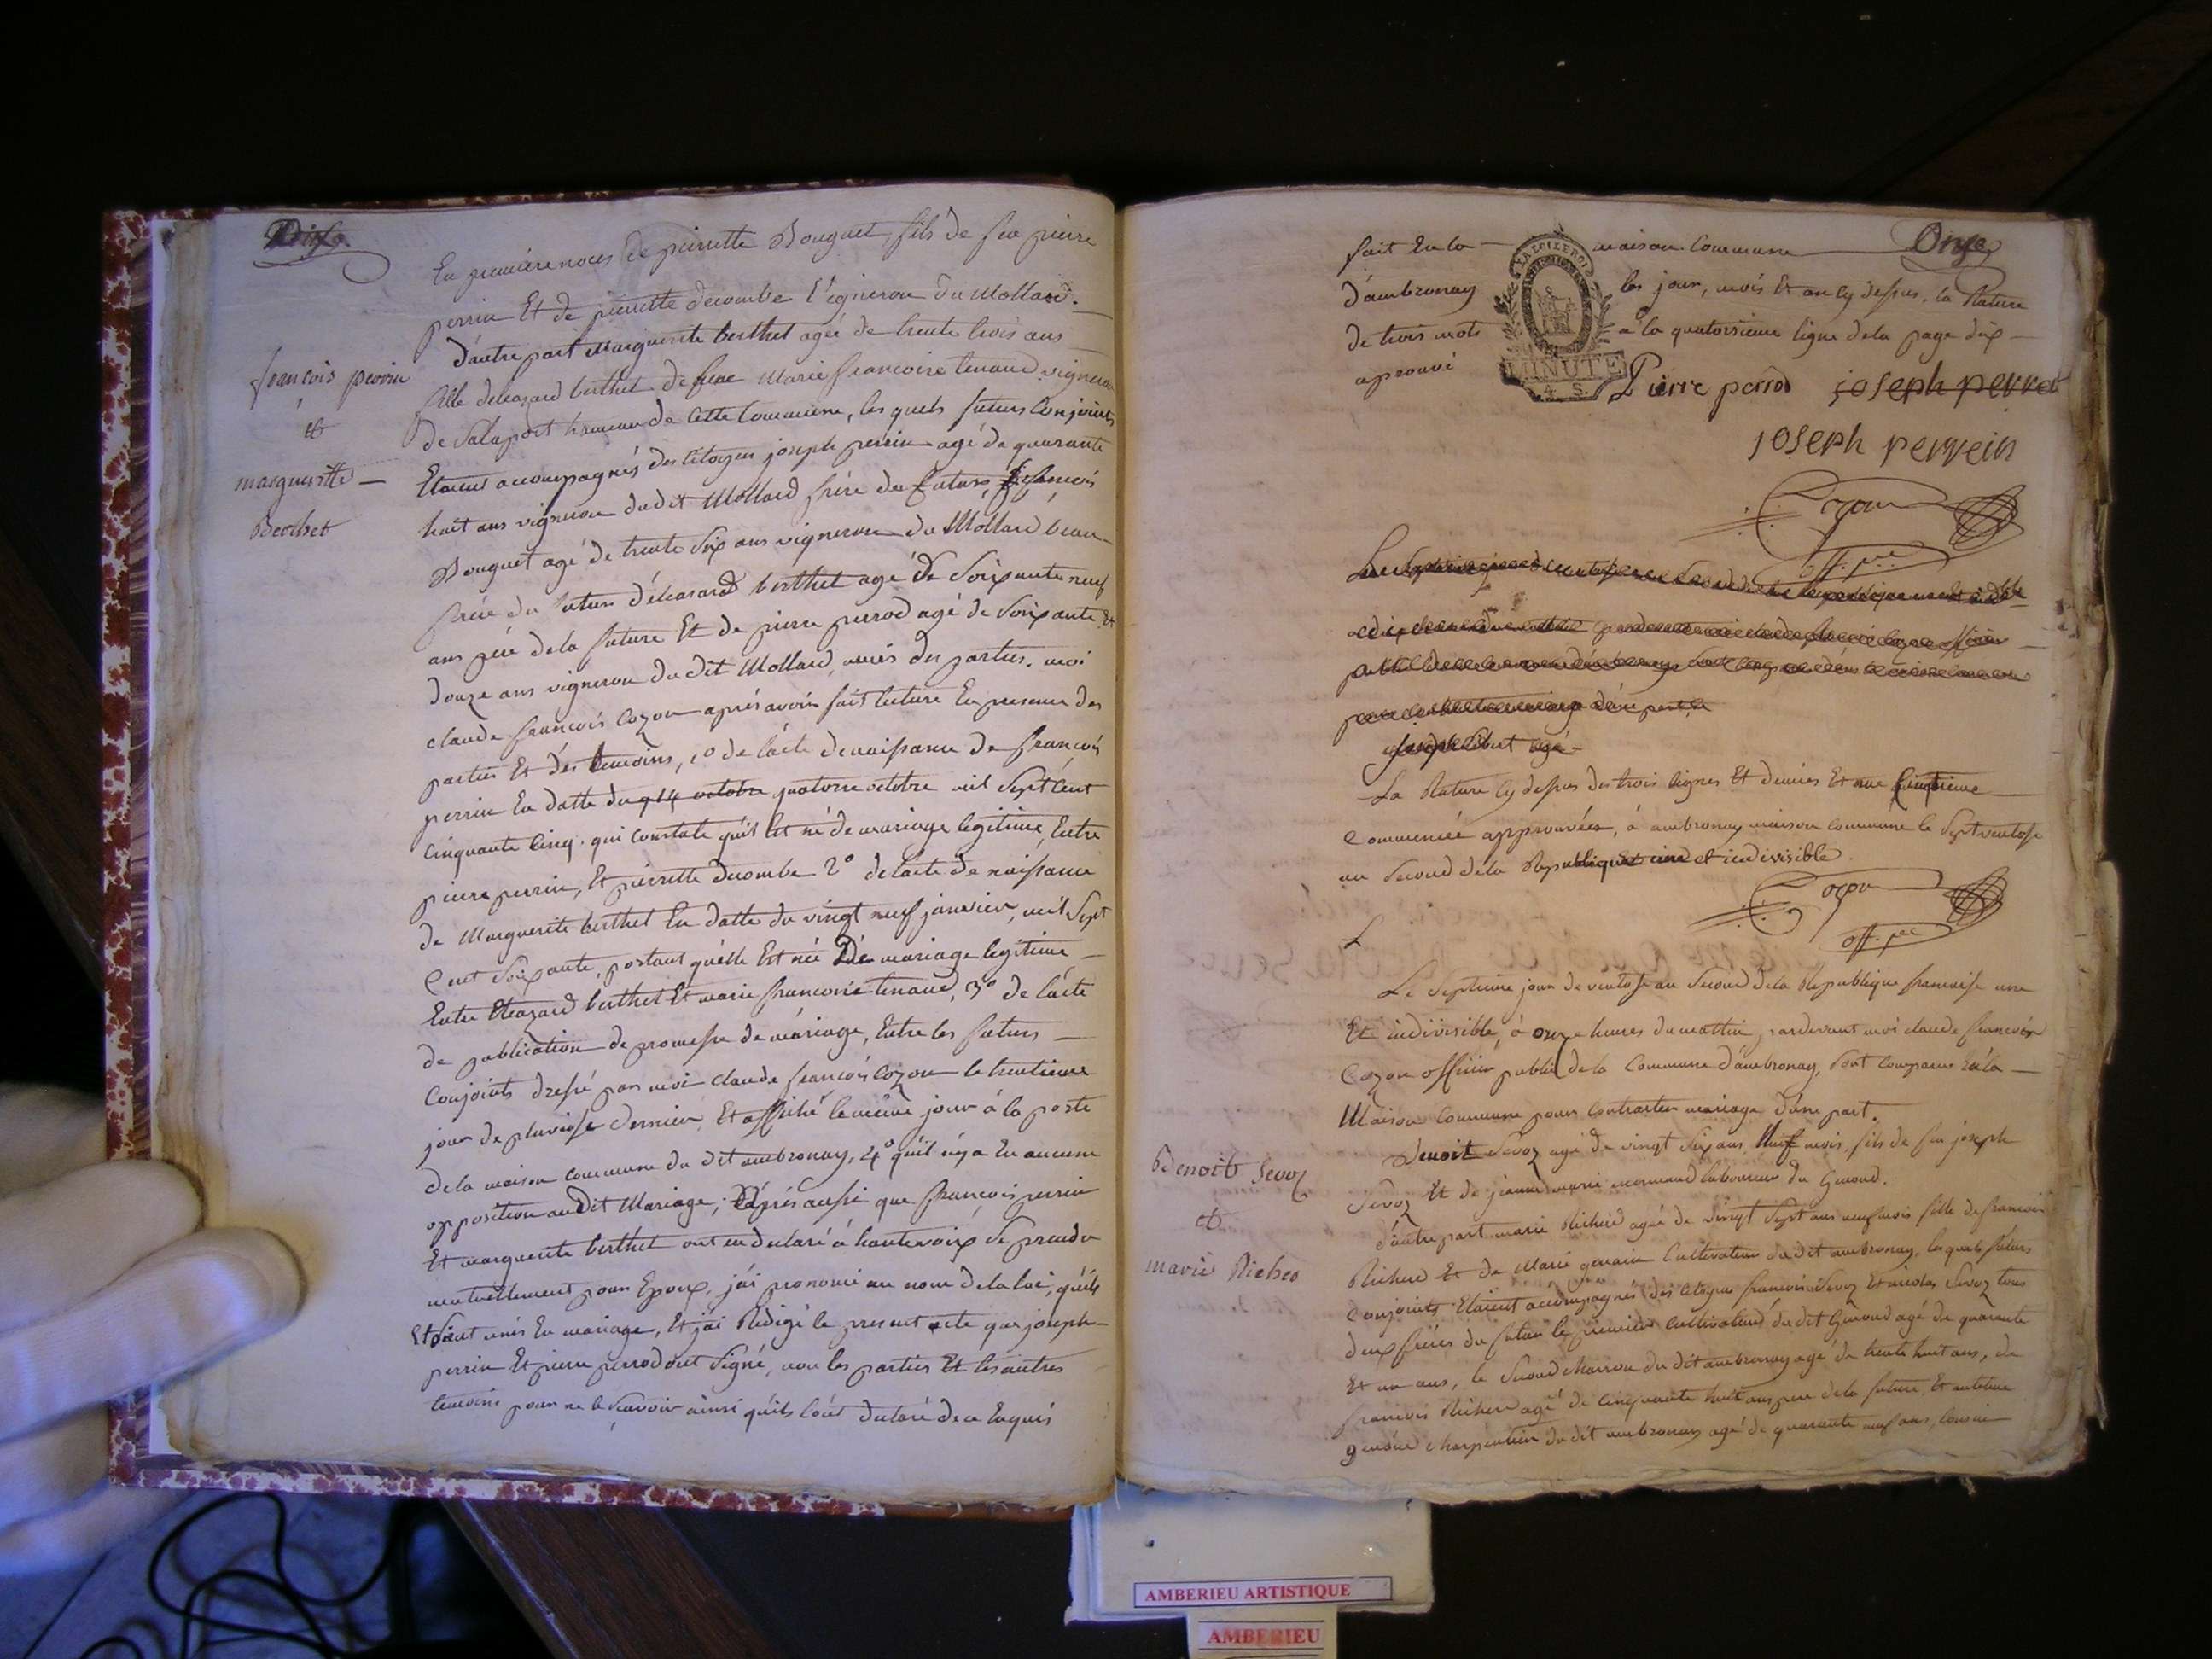 Dix
En premiere noces de pierrette Bouguet, fils de feu pierre
perrin Et de pierrette decombe Vigneron du Mollard.
d'autre part Marguerite berthet agée de trente trois ans
françois perrin
&
margueritte
Berthet
fille deleazard berthet de feue Marie francoise tenand vigneron
de Salaport hameau de Cette Commune, les quels futurs Conjoints
Etaient accompagnés des Citoyens joseph perrin agé de quarante
huit ans vigneron dudit Mollard frère du futur, françois
Bouguet agé de trente Six ans vigneron du Mollard beau-
frère du futur d'éléazard berthet agé de Soixante neuf
ans père de la future Et de pierre perrod agé de Soixante Et
douze ans vigneron du dit Mollard, amis des parties. moi
claude françois Cozon aprés avoir fait lecture En presence des
parties Et des temoins, 1° de l'acte de naissance de françois
perrin En datte du 14 octobre quatorze octobre mil Sept Cent
Cinquante Cinq. qui constate qu'il Est né de mariage legitime, Entre
pierre perrin, Et pierrette decombe 2° de l'acte de naissance
de Marguerite berthet En datte du vingt neuf janvier, mil Sept
Cent Soixante, portant qu'elle Est née De mariage legitime
Entre Eleazard berthet Et marie francoise tenand, 3° de l'acte
de publication de promesse de mariage, Entre les futurs
Conjoints dressé par moi claude françois Cozon le trentieme
jour de pluviose dernier, Et affiché le même jour à la porte
de la maison commune du dit ambronay, 4° qu'il n'y a Eu aucune
opposition audit Mariage; D'aprés aussi que françois perrin
Et marguerite berthet ont eu declaré à haute voix Se prendre
mutuellement pour Epoux, j'ai prononcé au nom de la loi, qu'ils
Etaient unis En mariage, Et j'ai Rédigé le present acte que joseph
perrin Et pierre perrod ont Signé, non les parties Et les autres
temoins pour ne le Sçavoir ainsi qu'ils l'ont declaré de ce Enquis
Onze
fait En la maison Commune
d'ambronay les jour, mois Et an cy dessus, la Rature
de trois mots a la quatorsieme ligne de la page dix
aprouvé
LA LOI LE ROI
MINUTE
4. S.
Pierre perrod joseph perret
joseph perrein
Cozon
off. p.ce
joseph agé
La Rature Cy dessus des trois lignes Et demies Et une Cinquieme
Commencée approuvées, à ambronay maison commune le Sept ventose
an Second de la Republique une et indivisible
Cozon
off. p.ce
L
Le Septieme jour de ventose an Second de la Republique francaise une
Et indivisible, à onze heures du mattin, pardevant moi claude françois
Cozon officier public de la Commune d'ambronay, Sont comparus En la
Maison commune pour contracter mariage d'une part.
Benoit Sevoz
&
marie Richer
Benoit Sevoz agé de vingt Six ans Neuf mois, fils de feu joseph
Sevoz Et de jeanne marie mermand laboureur du Genoud.
d'autre part marie Richerd agée de vingt Sept ans neuf mois fille de francois
Richerd Et de Marie Cultivateur du dit ambronay, les quels futurs
Conjoints Etaient accompagnés des Citoyens francois Sevoz Et nicolas Sevoz tous
deux frères du futur le premier Cultivateur du dit Genoud agé de quarante
Et un ans, le Second charron du dit ambronay agé de trente huit ans, de
francois Richerd agé de Cinquante huit ans père de la future, Et antoine
charpentier du dit ambronay agé de quarante neuf ans, Cousin
AMBERIEU ARTISTIQUE
AMBERIEU